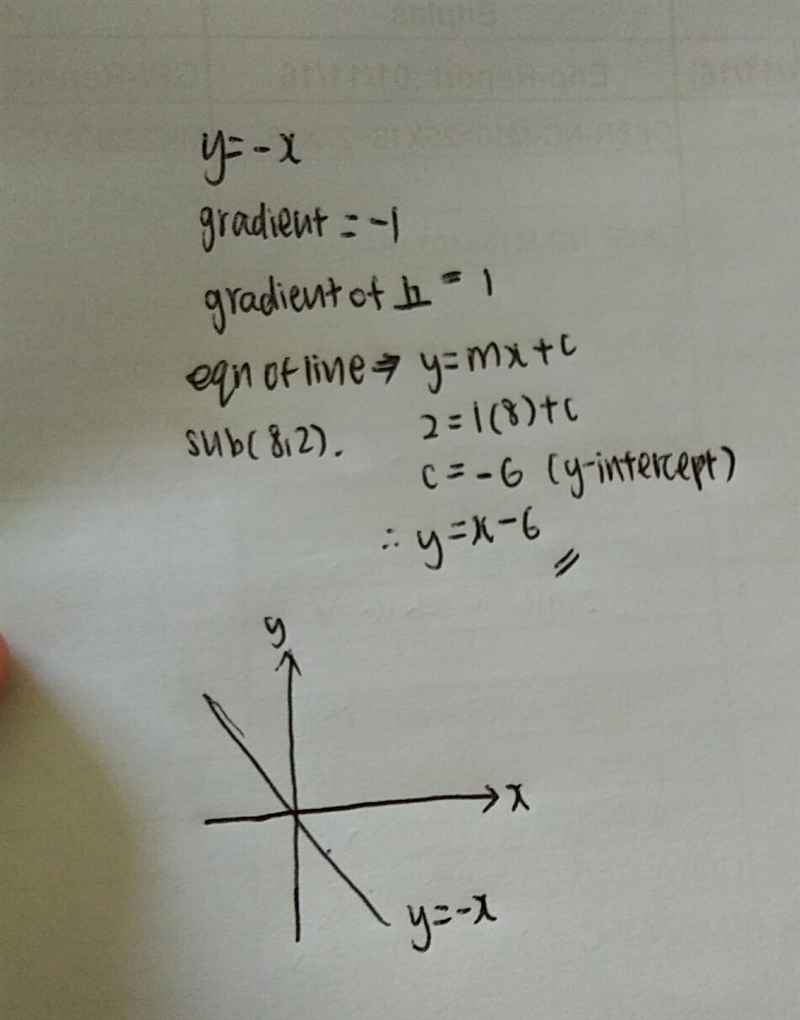 y=-x
gradient = -1
gradient of h = 1
eqn of line → y=mx+c
sub(8,2). 2=1(8)+c
c=-6 (y-intercept)
∴ y=x-6
y
x
y=-x